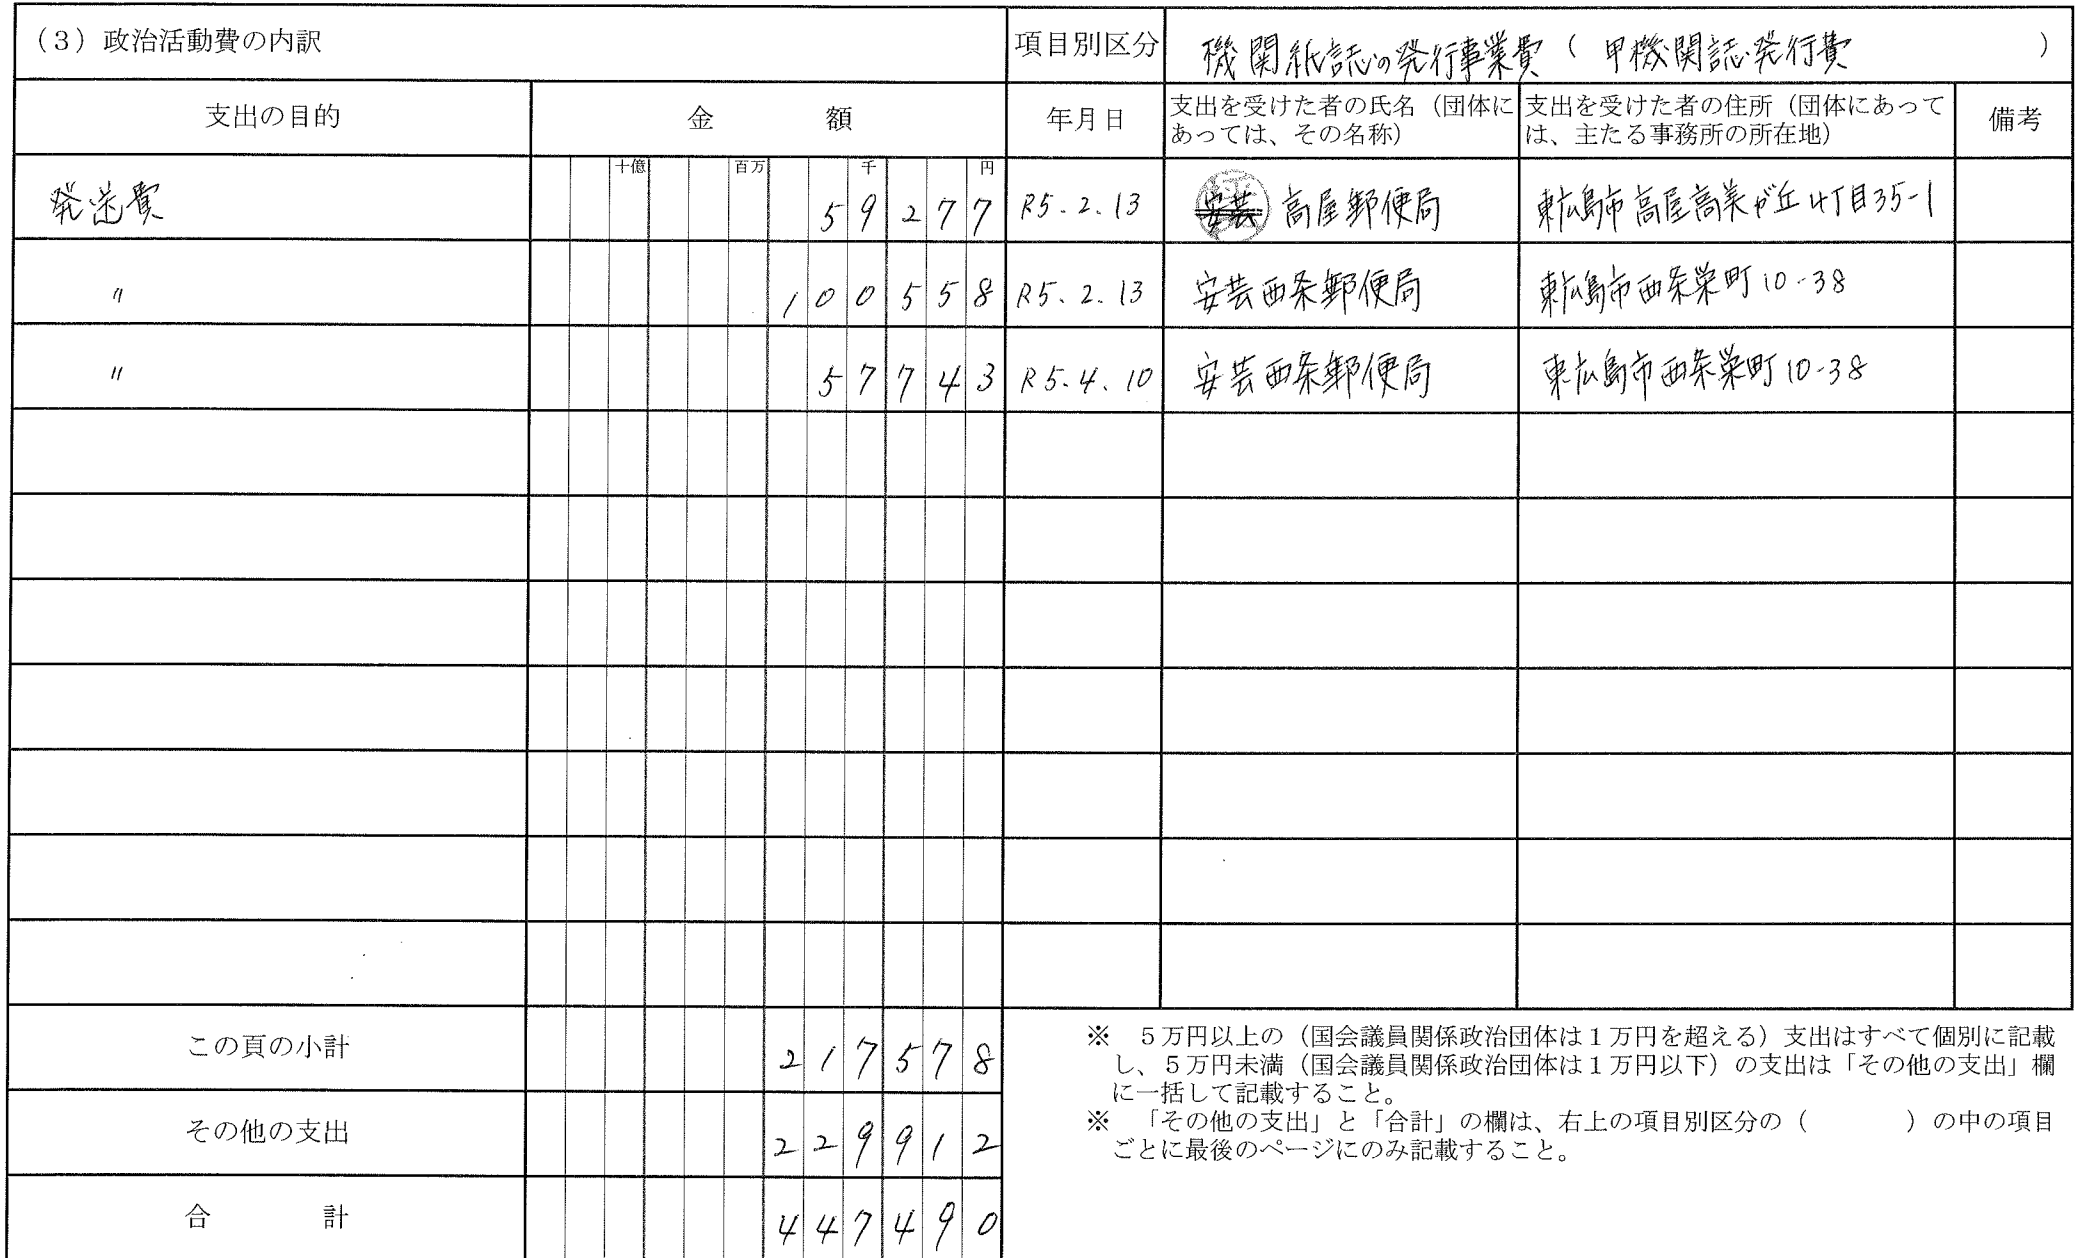 (3)政治活動費の内訳 項目別区分 機関紙誌の発行事業費( 甲機関誌発行費 )
支出の目的 金 額 年月日 支出を受けた者の氏名(団体に 支出を受けた者の住所(団体にあって 備考
あっては、その名称) は、主たる事務所の所在地)
十億 百万 千 円
発送費 59277 R5.2.13 安芸 高屋郵便局 東広島市高屋高美が丘4丁目35-1
〃 100558 R5.2.13 安芸西条郵便局 東広島市西条栄町10-38
〃 57743 R5.4.10 安芸西条郵便局 東広島市西条栄町10-38
この頁の小計 217578
その他の支出 229912
合 計 447490
※ 5万円以上の(国会議員関係政治団体は1万円を超える)支出はすべて個別に記載
し、5万円未満(国会議員関係政治団体は1万円以下)の支出は「その他の支出」欄
に一括して記載すること。
※ 「その他の支出」と「合計」の欄は、右上の項目別区分の( )の中の項目
ごとに最後のページにのみ記載すること。